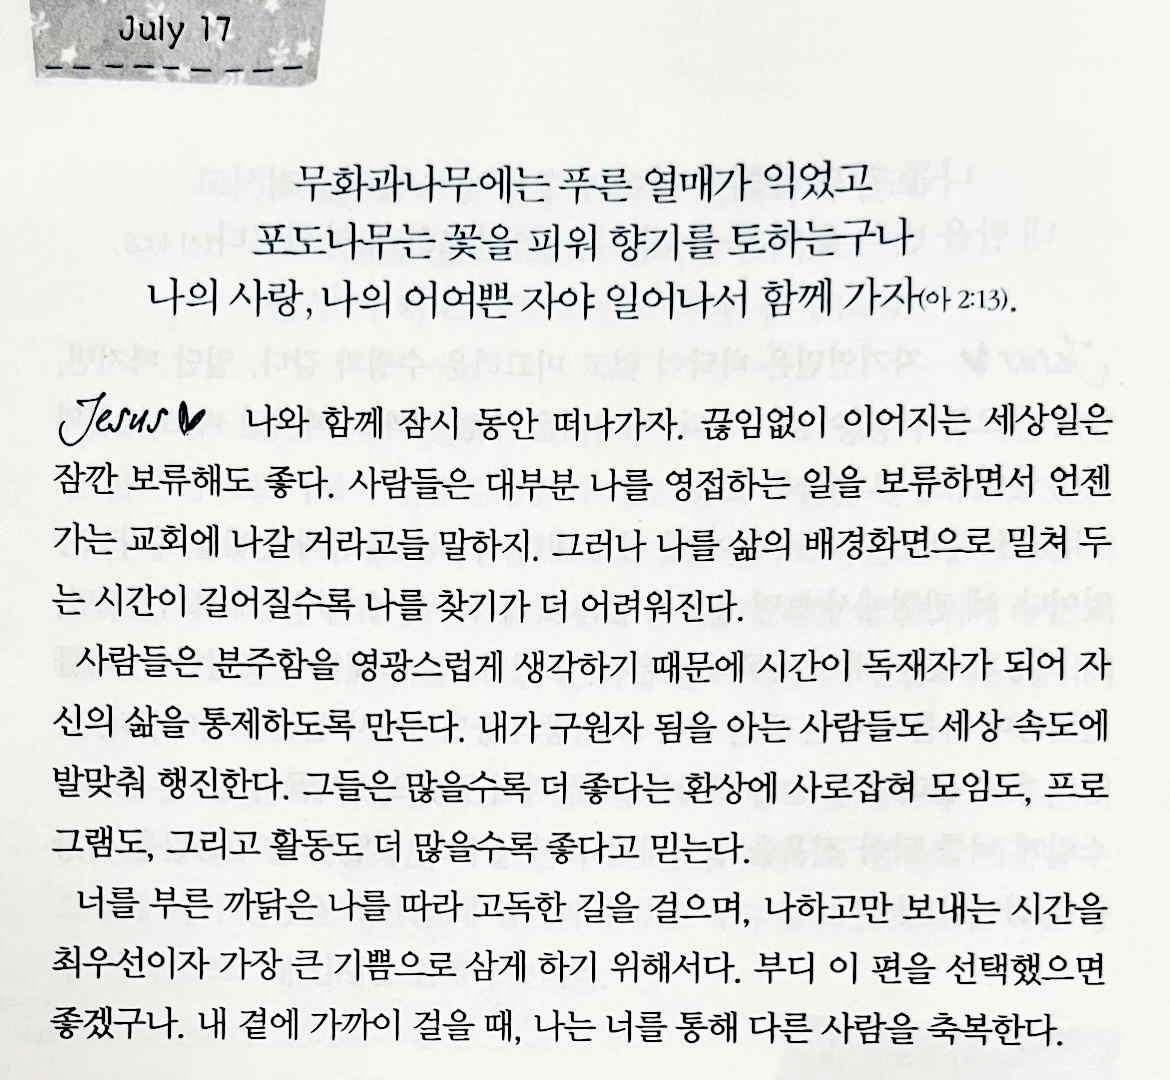 July 17
무화과나무에는 푸른 열매가 익었고
포도나무는 꽃을 피워 향기를 토하는구나
나의 사랑, 나의 어여쁜 자야 일어나서 함께 가자(아 2:13).
Jesus 나와 함께 잠시 동안 떠나가자. 끊임없이 이어지는 세상일은
잠깐 보류해도 좋다. 사람들은 대부분 나를 영접하는 일을 보류하면서 언젠
가는 교회에 나갈 거라고들 말하지. 그러나 나를 삶의 배경화면으로 밀쳐 두
는 시간이 길어질수록 나를 찾기가 더 어려워진다.
사람들은 분주함을 영광스럽게 생각하기 때문에 시간이 독재자가 되어 자
신의 삶을 통제하도록 만든다. 내가 구원자 됨을 아는 사람들도 세상 속도에
발맞춰 행진한다. 그들은 많을수록 더 좋다는 환상에 사로잡혀 모임도, 프로
그램도, 그리고 활동도 더 많을수록 좋다고 믿는다.
너를 부른 까닭은 나를 따라 고독한 길을 걸으며, 나하고만 보내는 시간을
최우선이자 가장 큰 기쁨으로 삼게 하기 위해서다. 부디 이 편을 선택했으면
좋겠구나. 내 곁에 가까이 걸을 때, 나는 너를 통해 다른 사람을 축복한다.